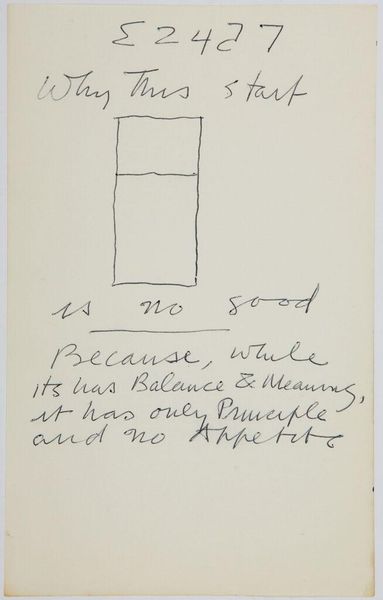 Why This start
is no good
Because, while
its has Balance & Meaning,
it has only Principle
and no Appetite